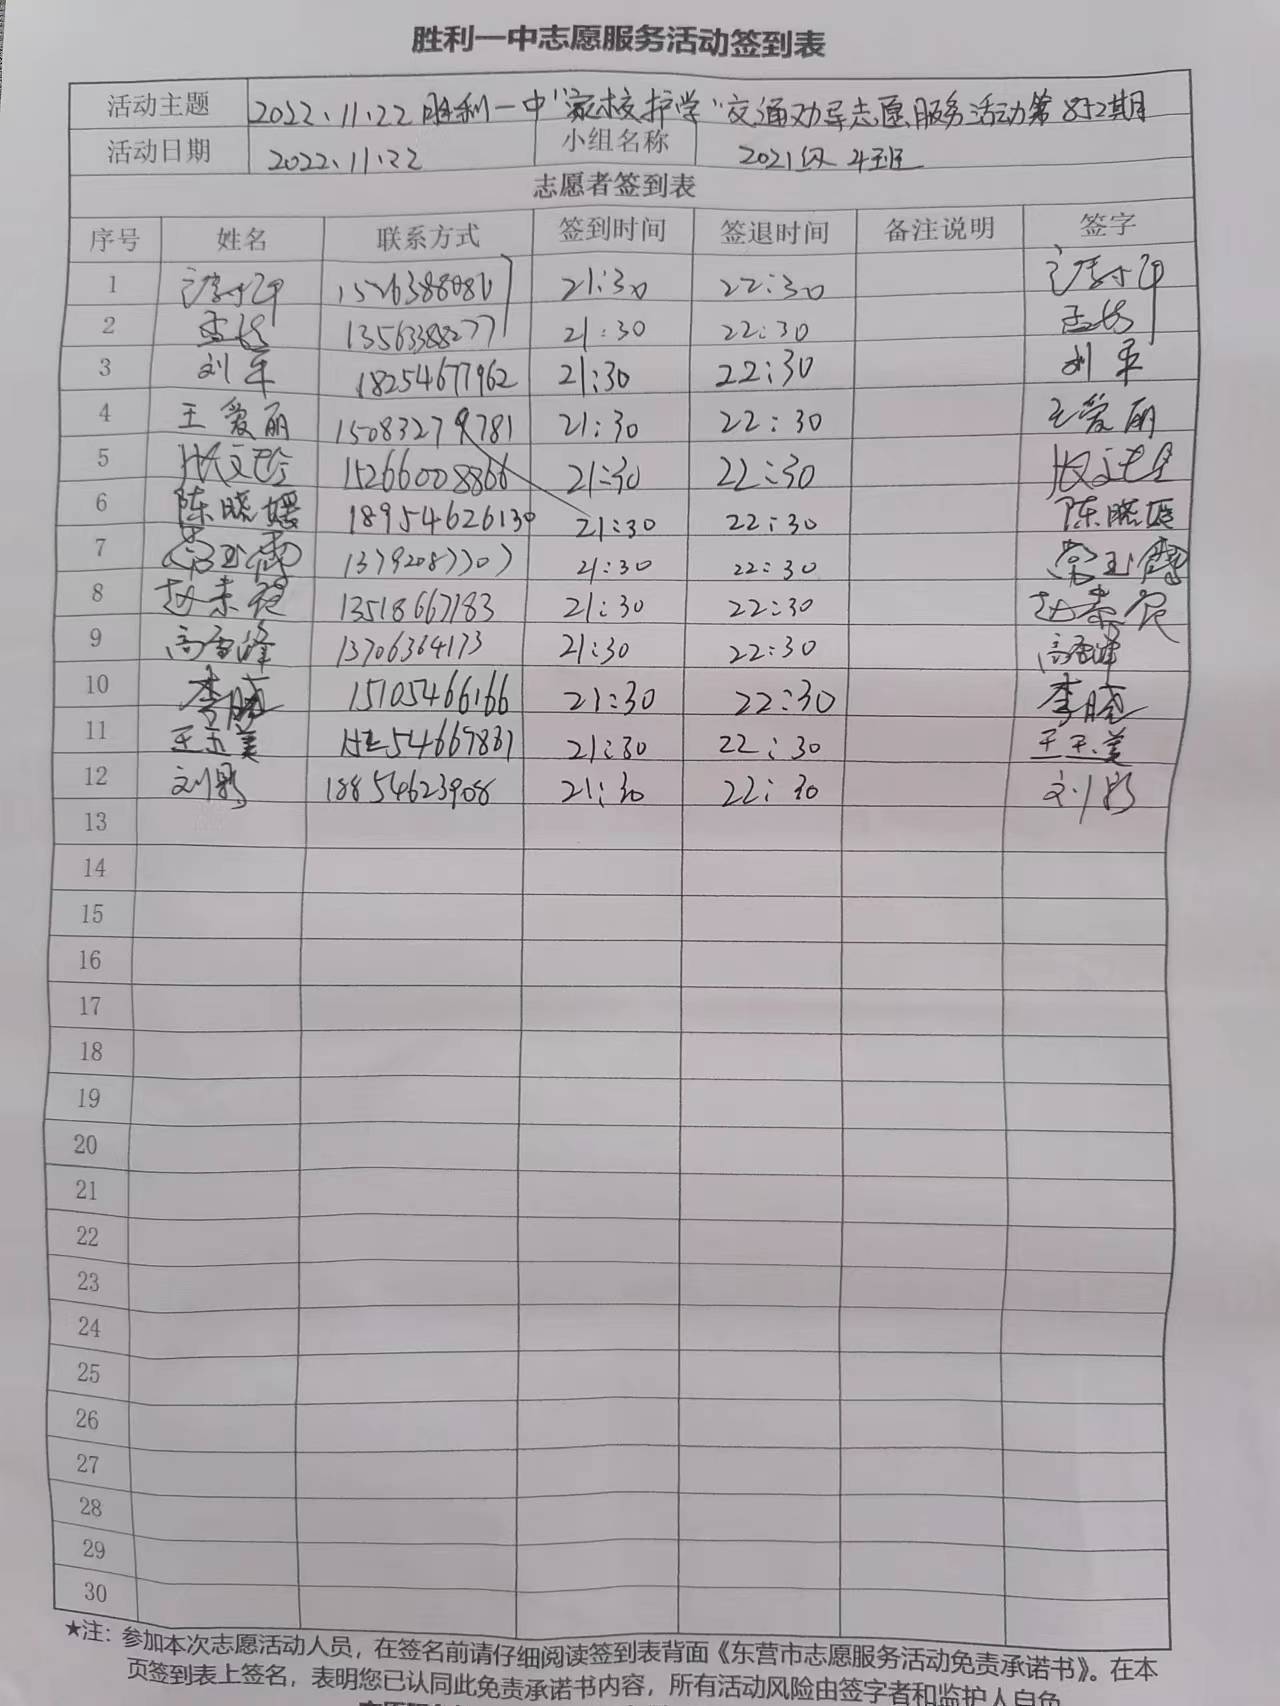 胜利一中志愿服务活动签到表
活动主题 2022.11.22胜利一中"家校护学"交通劝导志愿服务活动第852期
活动日期 2022.11.22 小组名称 2021级4班
志愿者签到表
序号 姓名 联系方式 签到时间 签退时间 备注说明 签字
1 21:30 22:30
2 13563388277 21:30 22:30
3 刘军 18254677962 21:30 22:30 刘军
4 王爱丽 15083279781 21:30 22:30 王爱丽
5 15266008866 21:30 22:30
6 陈晓媛 18954626130 21:30 22:30 陈晓媛
7 13792087707 21:30 22:30
8 13518667183 21:30 22:30
9 高香峰 13706364173 21:30 22:30 高香峰
10 李晓 15105466166 21:30 22:30 李晓
11 王玉美 21:30 22:30 王玉美
12 刘影 18854623908 21:30 22:30 刘影
13
14
15
16
17
18
19
20
21
22
23
24
25
26
27
28
29
30
★注：参加本次志愿活动人员，在签名前请仔细阅读签到表背面《东营市志愿服务活动免责承诺书》。在本
页签到表上签名，表明您已认同此免责承诺书内容，所有活动风险由签字者和监护人自负